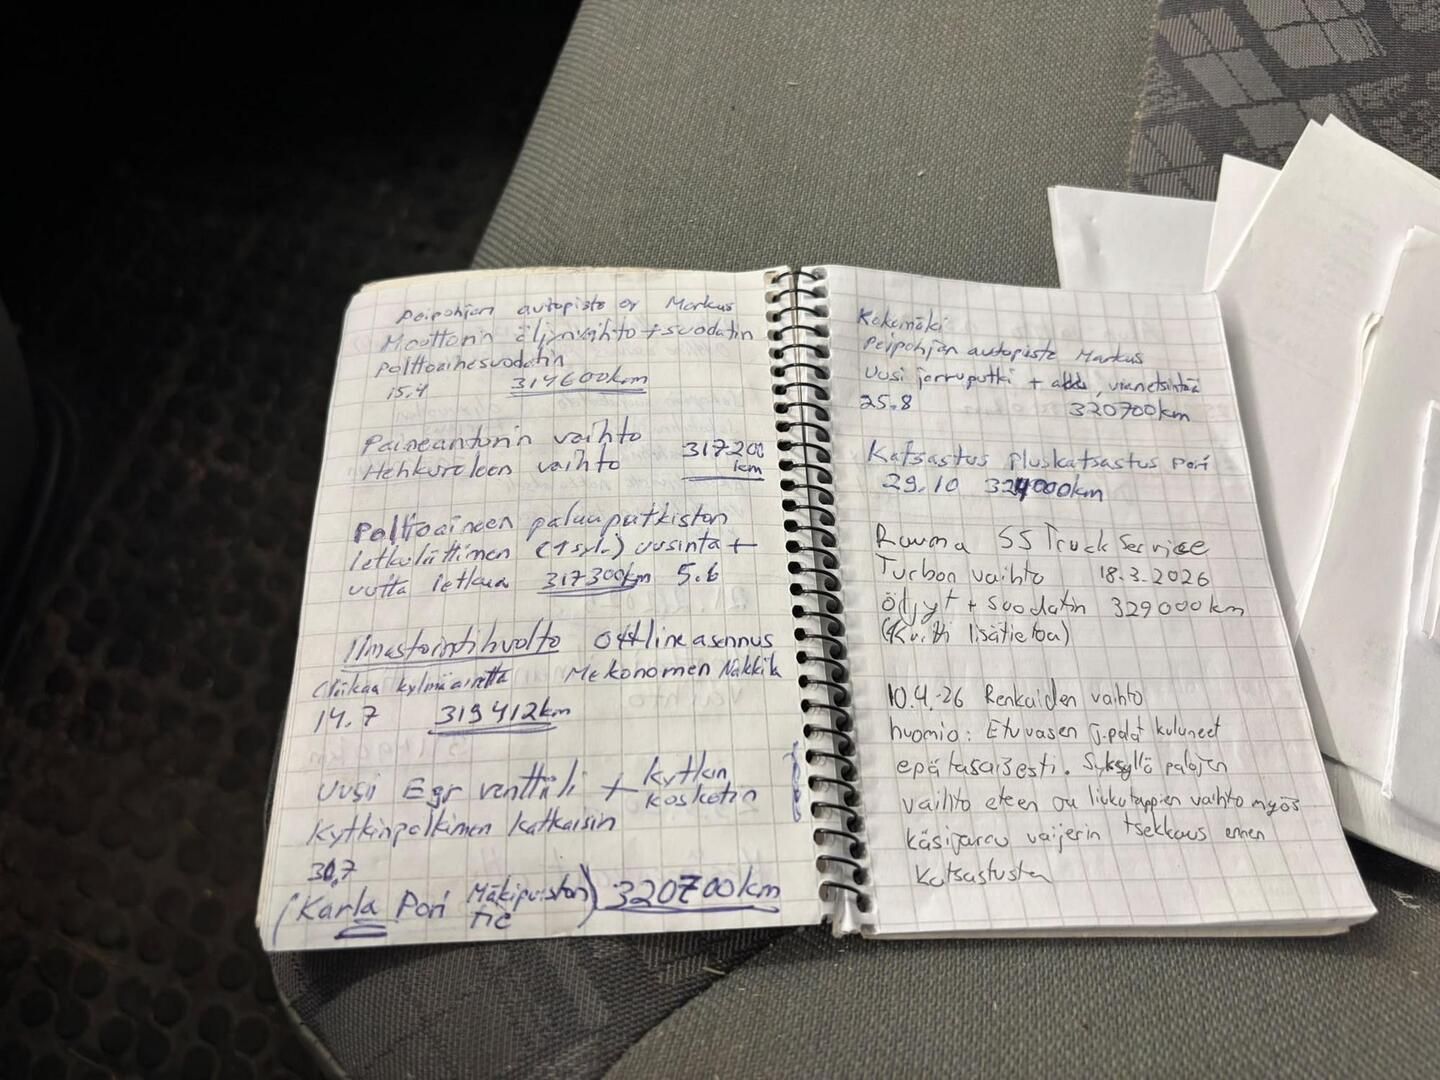 Peipohjan autopiste oy Markus
Moottorin öljynvaihto + suodatin
polttoainesuodatin
15.4 314600km
Paineanturin vaihto 317200
Hehkureleen vaihto km
Polttoaineen paluuputkiston
letkuliittimen (1 syl.) uusinta +
uutta letkua 317300km 5.6
Ilmastointihuolto Ottline asennus
(liikaa kylmäainetta Mekonomen Nakkila
14.7 319412km
Uusi Egr venttiili + kytkin
koskotin
Kytkinpolkimen katkaisin
30.7
(Karla Pori Mäkipuiston) 320700km
tie
Kokemäki
Peipohjan autopiste Markus
Uusi jarruputki + vianetsintää
25.8 320700km
Katsastus pluskatsastus pori
29.10 324000km
Rauma SS Truck Service
Turbon vaihto 18.3.2026
Öljyt + suodatin 329000km
(Kuitti lisätietoa)
10.4.-26 Renkaiden vaihto
huomio: Etuvasen j.palat kuluneet
epätasaisesti. Syksyllä palojen
vaihto eteen ja liukutappien vaihto myös
käsijarru vaijerin tsekkaus ennen
katsastusta